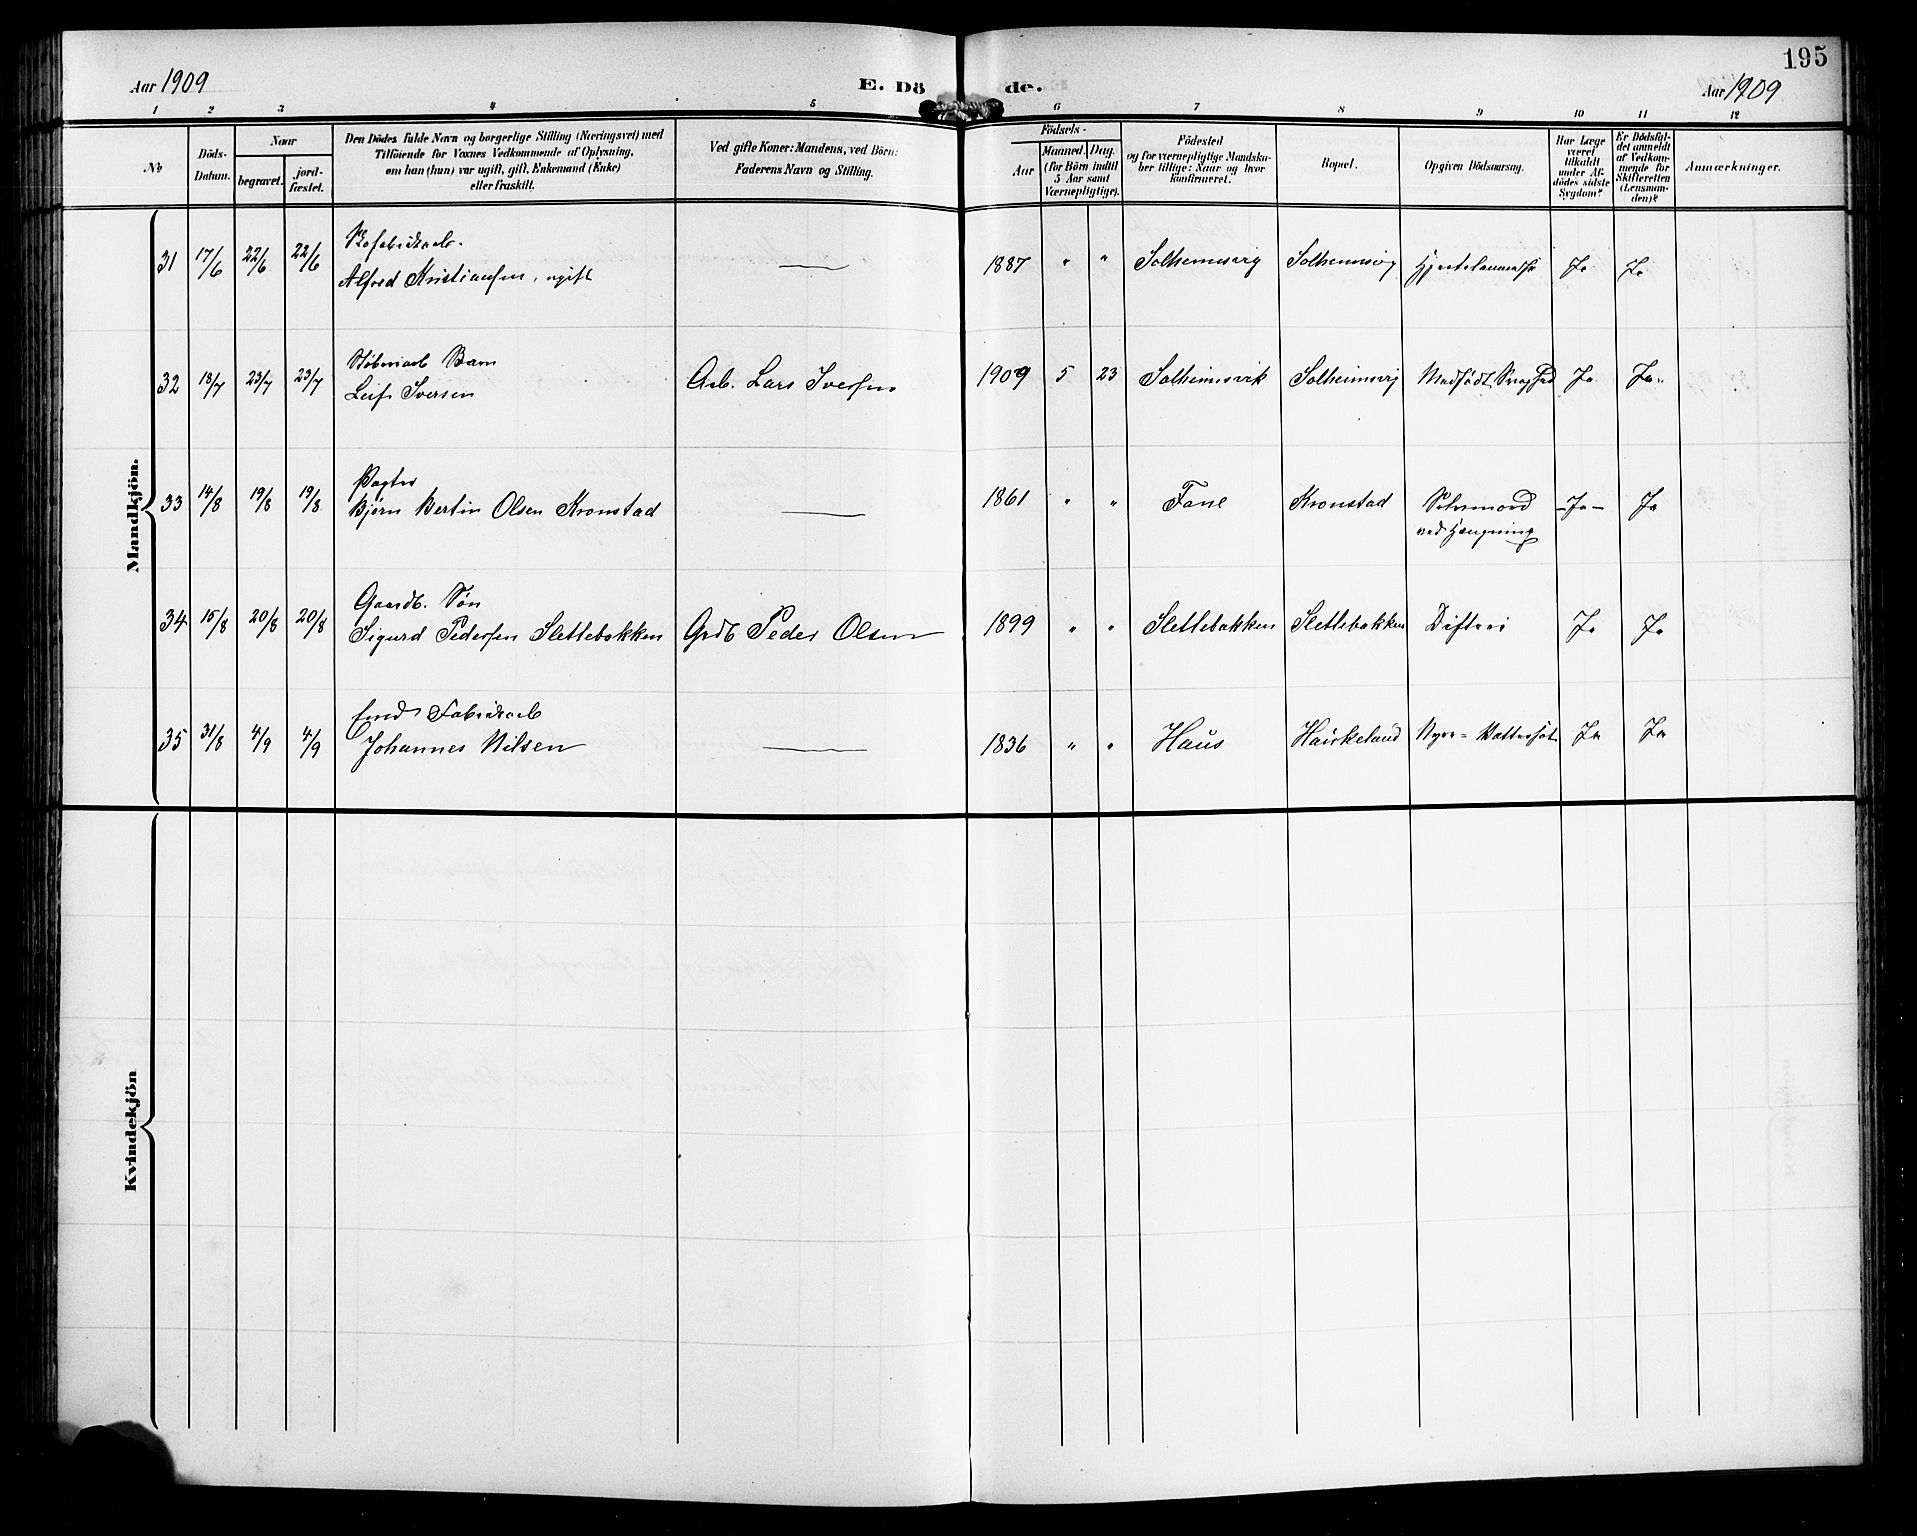 195
Aar 1909
E. Dö
de.
Aar 1909
1 2 3 4 5 6 7 8 9 10 11 12
No
Döds-
Datum.
Naar
begravet.
jord-
fæstet.
Den Dödes fulde Navn og borgerlige Stilling (Næringsvei) med
Tilföiende for Voxnes Vedkommende af Oplysning,
om han (hun) var ugift, gift, Enkemand (Enke)
eller fraskilt.
Ved gifte Koner: Mandens, ved Börn:
Faderens Navn og Stilling.
Födsels-
Aar
Maaned. Dag.
(for Börn indtil
5 Aar samt
Værnepligtige).
Födested
og for værnepligtige Mandska-
ber tillige: Naar og hvor
konfirmeret.
Bopæl.
Opgiven Dödsaarsag.
Har Læge
været
tilkaldt
under Af-
dödes sidste
Sygdom?
Er Dödsfal-
det anmeldt
af Vedkom-
mende for
Skifteretten
(Lensman-
den)?
Anmærkninger.
Mandkjön.
31 17/6 22/6 22/6
Alfred Kristiansen, ugift
— 1887 " " Solheimsvig Solheimsvig Ja Ja
Barn
32 18/7 23/7 23/7 Leif Iversen Arb. Lars Iversen 1909 5 23 Solheimsvik Solheimsvig Medfödt Svaghed Ja Ja
33 14/8 19/8 19/8 Bjørn Bertin Olsen Kronstad — 1861 " " Fane Kronstad Selvmord -Ja- Ja
ved Hængning
Gaardb. Søn
34 15/8 20/8 20/8 Sigurd Pedersen Slettebakken Grdb Peder Olsen 1899 " " Slettebakken Slettebakken Difteri Ja Ja
Fabrikarb
35 31/8 4/9 4/9 Johannes Nilsen — 1836 " " Haus Haukeland Nyre- Vattersot Ja Ja
Kvindekjön